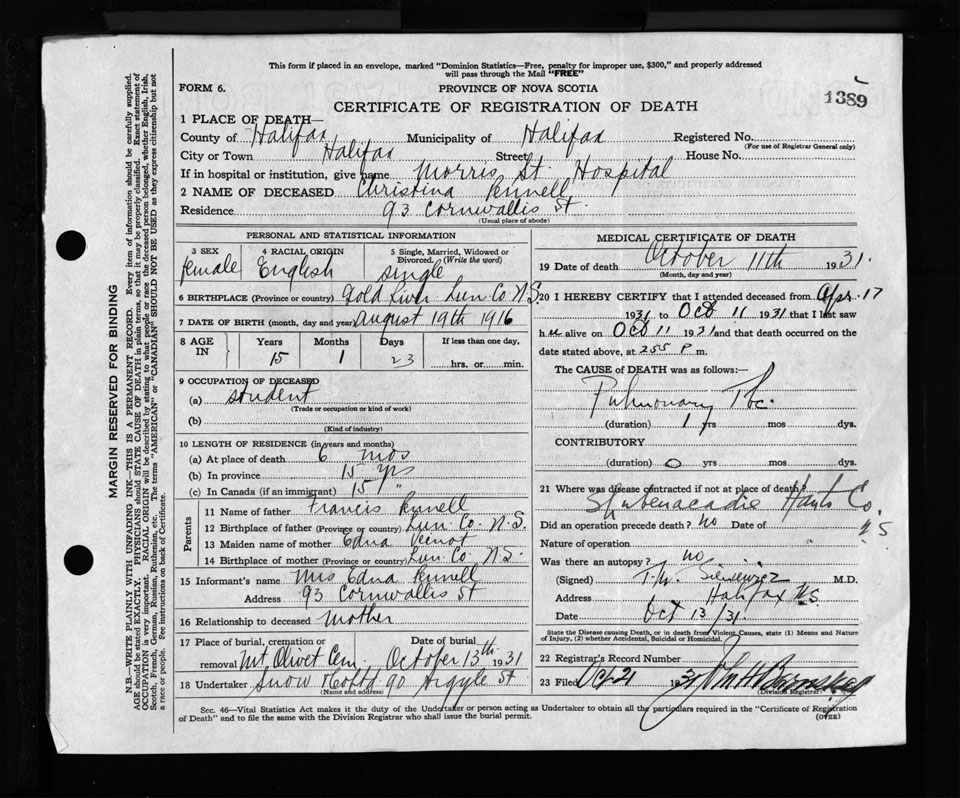 This form if placed in an envelope, marked "Dominion Statistics—Free, penalty for improper use, $300," and properly addressed
will pass through the Mail "FREE"
FORM 6.
PROVINCE OF NOVA SCOTIA
1389
CERTIFICATE OF REGISTRATION OF DEATH
1 PLACE OF DEATH—
County of Halifax Municipality of Halifax Registered No.
(For use of Registrar General only)
City or Town Halifax Street House No.
If in hospital or institution, give name Morris St. Hospital
2 NAME OF DECEASED Christina Pennell
Residence 93 Cornwallis St.
(Usual place of abode)
PERSONAL AND STATISTICAL INFORMATION
3 SEX 4 RACIAL ORIGIN 5 Single, Married, Widowed or
Divorced. (Write the word)
female English single
6 BIRTHPLACE (Province or country) Gold River Lun Co N.S.
7 DATE OF BIRTH (month, day and year) August 19th 1916
8 AGE IN Years Months Days If less than one day,
15 1 23 hrs. or min.
9 OCCUPATION OF DECEASED
(a) student
(Trade or occupation or kind of work)
(b)
(Kind of industry)
10 LENGTH OF RESIDENCE (in years and months)
(a) At place of death 6 mos
(b) In province 15 yrs
(c) In Canada (if an immigrant) 15 "
Parents
11 Name of father Francis Pennell
12 Birthplace of father (Province or country) Lun. Co. N.S.
13 Maiden name of mother Edna Veinot
14 Birthplace of mother (Province or country) Lun. Co N.S.
15 Informant's name Mrs Edna Pennell
Address 93 Cornwallis St
16 Relationship to deceased mother
17 Place of burial, cremation or Date of burial
removal Mt. Olivet Cem. October 13th 1931
18 Undertaker Snow & Co Ltd 90 Argyle St
(Name and address)
MEDICAL CERTIFICATE OF DEATH
19 Date of death October 11th 1931.
(Month, day and year)
20 I HEREBY CERTIFY that I attended deceased from Apr. 17
1931 to Oct 11 1931 that I last saw
h er alive on Oct 11 1931 and that death occurred on the
date stated above, at 255 P m.
The CAUSE of DEATH was as follows:—
Pulmonary Tbc.
(duration) 1 yrs mos dys.
CONTRIBUTORY
(duration) 0 yrs mos dys.
21 Where was disease contracted if not at place of death?
Shubenacadie Hants Co.
N S
Did an operation precede death? no Date of
Nature of operation
Was there an autopsy? no
(Signed) T.M. Sieniewicz M.D.
Address Halifax N.S.
Date Oct 13/31.
State the Disease causing Death, or in death from Violent Causes, state (1) Means and Nature
of Injury, (2) whether Accidental, Suicidal or Homicidal.
22 Registrar's Record Number
23 Filed Oct 21 1931 John H Barnstead
(Division Registrar)
Sec. 46—Vital Statistics Act makes it the duty of the Undertaker or person acting as Undertaker to obtain all the particulars required in the "Certificate of Registration
of Death" and to file the same with the Division Registrar who shall issue the burial permit.
(OVER)
MARGIN RESERVED FOR BINDING
N.B.—WRITE PLAINLY WITH UNFADING INK—THIS IS A PERMANENT RECORD. Every item of information should be carefully supplied.
AGE should be stated EXACTLY. PHYSICIANS should STATE CAUSE OF DEATH in plain terms, so that it may be properly classified. Exact statement of
OCCUPATION is very important. RACIAL ORIGIN will be described by stating to what people or race the deceased person belonged, whether English, Irish,
Scotch, French, German, Russian, Ruthenian, etc. The terms "AMERICAN" or "CANADIAN" SHOULD NOT BE USED as they express citizenship but not
a race or people. See instructions on back of Certificate.